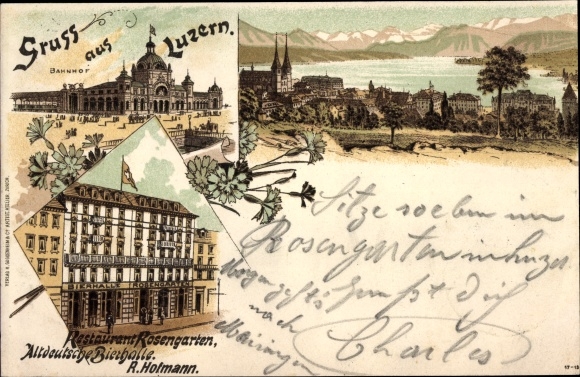 Gruss aus Luzern.
BAHNHOF
BIERHALLE ROSENGARTEN
Restaurant Rosengarten,
Altdeutsche Bierhalle.
R. Hofmann.
Sitze soeben im
Rosengarten in Luzern
Morgen gehts
grüsst Dich
nach
Meiringen
Charles